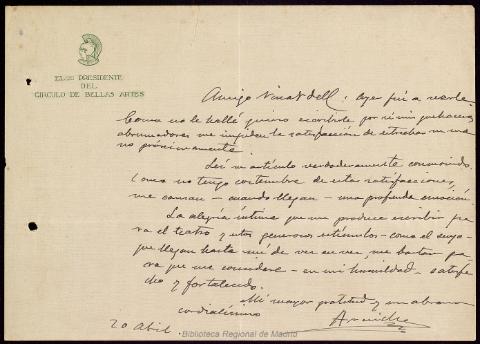 EL PRESIDENTE
DEL
CIRCULO DE BELLAS ARTES
Amigo : Ayer fui a verle.
Como no le hallé quiero escribirle por si mis quehaceres
abrumadores me impiden la satisfacción de estrechar su ma
no próximamente.
Leí su artículo verdaderamente conmovido.
Como no tengo costumbre de estas satisfacciones,
me causan - cuando llegan - una profunda emoción.
La alegría íntima que me produce escribir pa
ra el teatro y estos generosos estímulos - como el suyo -
que llegan hasta mí de vez en vez, me bastan pa
ra que me considere - en mi humildad - satisfe
cho y fortalecido.
Mi mayor gratitud y un abrazo
cordialísimo
20 Abril -
Biblioteca Regional de Madrid